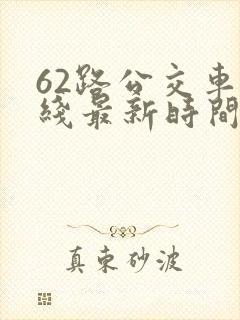 62路公交车
綫最新時間
真东砂波